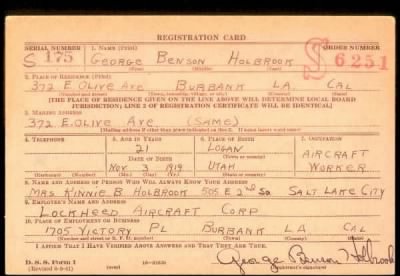 REGISTRATION CARD
SERIAL NUMBER 1. NAME (Print) ORDER NUMBER
S 175 GEORGE BENSON HOLBROOK S 6251
(First) (Middle) (Last)
2. PLACE OF RESIDENCE (Print)
372 E. OLIVE AVE BURBANK LA. CAL
(Number and street) (Town, township, village, or city) (County) (State)
[THE PLACE OF RESIDENCE GIVEN ON THE LINE ABOVE WILL DETERMINE LOCAL BOARD
JURISDICTION; LINE 2 OF REGISTRATION CERTIFICATE WILL BE IDENTICAL]
3. MAILING ADDRESS
372 E. OLIVE AVE. (SAME)
[Mailing address if other than place indicated on line 2. If same insert word same]
4. TELEPHONE 5. AGE IN YEARS 6. PLACE OF BIRTH 7. OCCUPATION
21 LOGAN AIRCRAFT
DATE OF BIRTH (Town or county)
NOV 3 1919 UTAH WORKER
(Mo.) (Day) (Yr.) (State or country)
8. NAME AND ADDRESS OF PERSON WHO WILL ALWAYS KNOW YOUR ADDRESS
MRS KINNIE B. HOLBROOK 505 E 2nd So SALT LAKE CITY
9. EMPLOYER'S NAME AND ADDRESS
LOCKHEED AIRCRAFT CORP
10. PLACE OF EMPLOYMENT OR BUSINESS
1705 VICTORY PL BURBANK LA CAL
(Number and street or R. F. D. number) (Town) (County) (State)
I AFFIRM THAT I HAVE VERIFIED ABOVE ANSWERS AND THAT THEY ARE TRUE.
D. S. S. Form 1 George Benson Holbrook
(Registrant's signature)